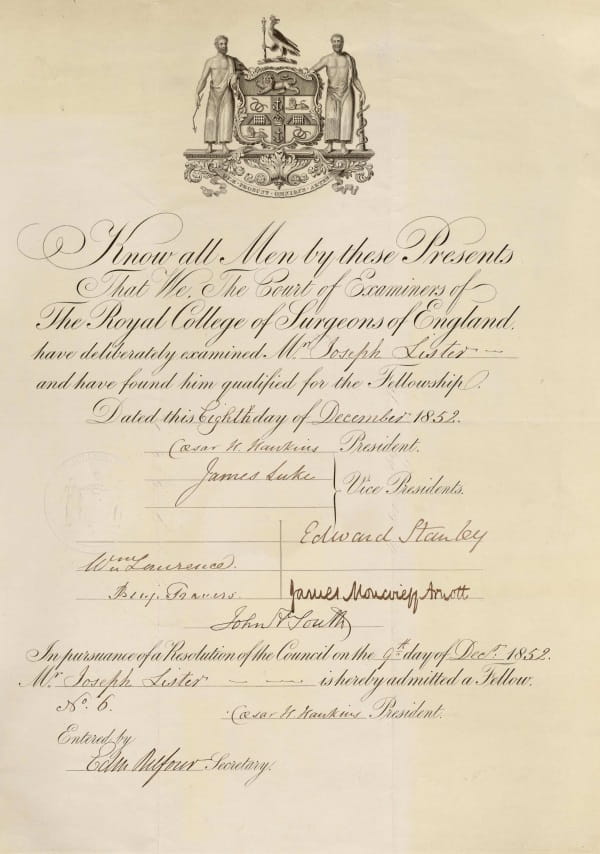 QUÆ PROSUNT OMNIBUS ARTES
Know all Men by these Presents
That We, The Court of Examiners of
The Royal College of Surgeons of England,
have deliberately examined Mr. Joseph Lister
and have found him qualified for the Fellowship.
Dated this Eighth day of December 1852.
Cæsar H. Hawkins President.
James Luke
Vice Presidents.
Edward Stanley
Wm Lawrence.
Benj. Travers. James Moncrieff Arnott
John F. South
In pursuance of a Resolution of the Council on the 9th day of Decr. 1852.
Mr. Joseph Lister is hereby admitted a Fellow.
No. 6. Cæsar H. Hawkins President.
Entered by
Edm Belfour Secretary.